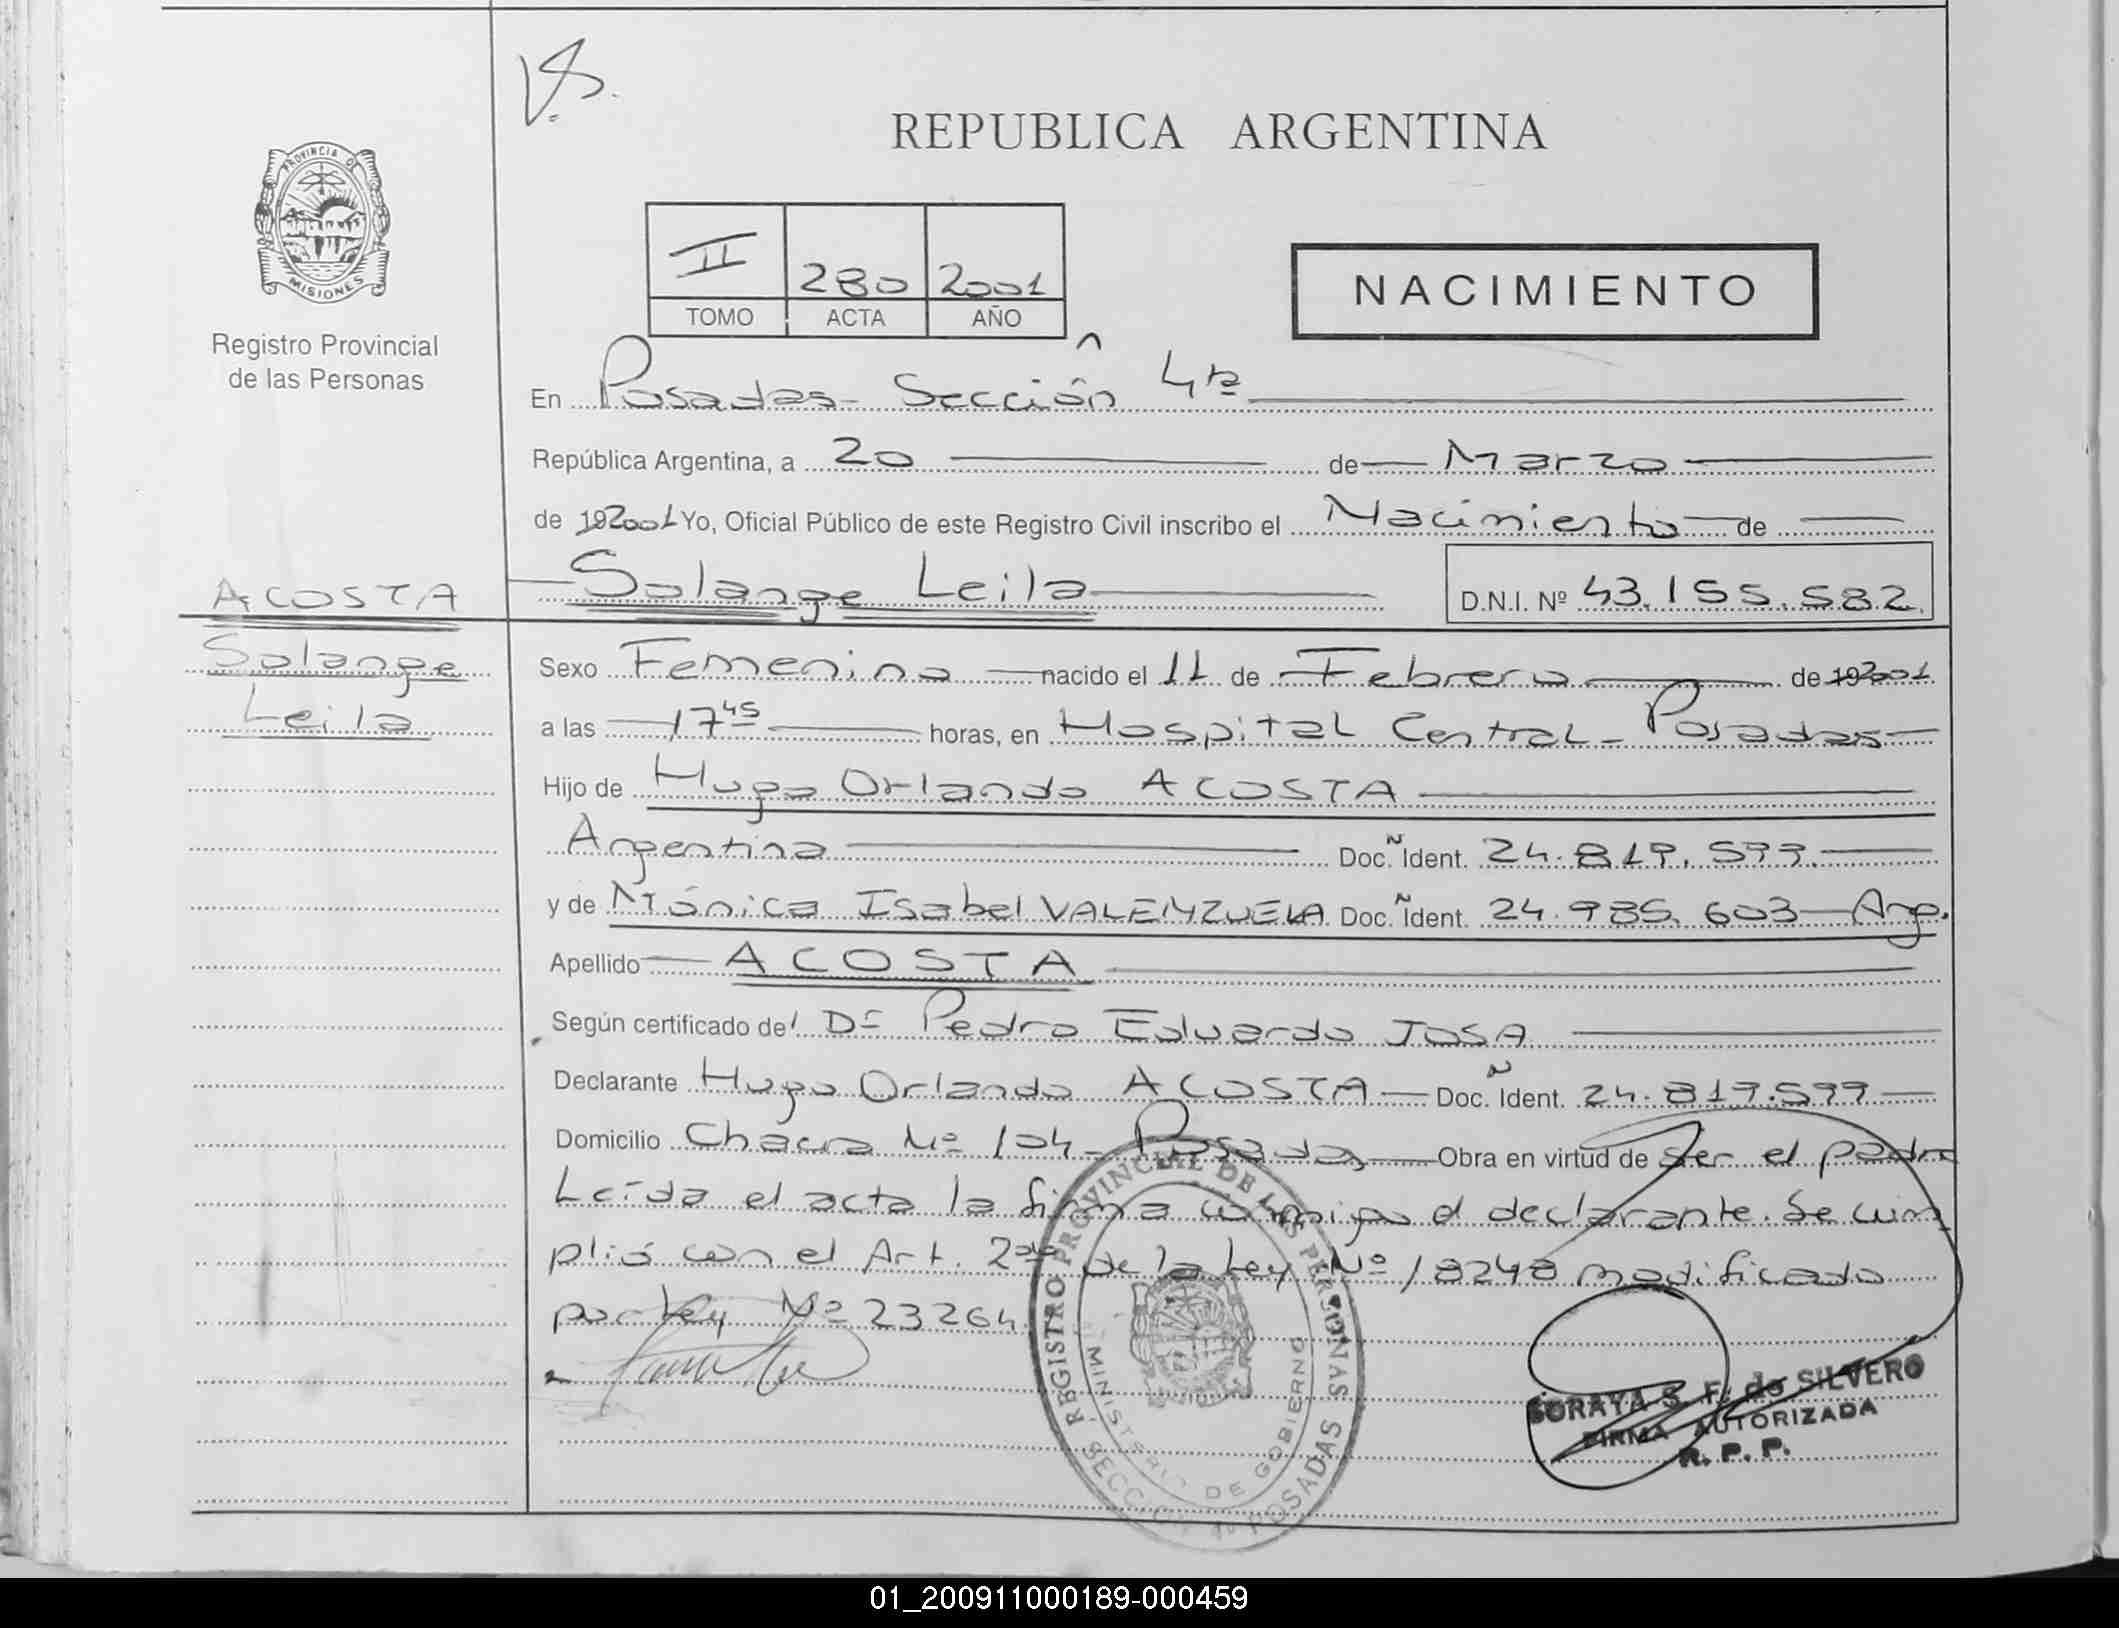 V.S.
REPUBLICA ARGENTINA
PROVINCIA DE
MISIONES
Registro Provincial
de las Personas
II 280 2001
TOMO ACTA AÑO
NACIMIENTO
En Posadas - Sección 4ta
República Argentina, a 20 de Marzo
de 192001 Yo, Oficial Público de este Registro Civil inscribo el Nacimiento de
ACOSTA
Solange Leila D.N.I. Nº 43.155.582
Solange
Leila
Sexo Femenino nacido el 11 de Febrero de 192001
a las 17 45 horas, en Hospital Central - Posadas
Hijo de Hugo Orlando ACOSTA
Argentina Doc. Ident. 24.819.599
y de Mónica Isabel VALENZUELA Doc. Ident. 24.985.603 - Arg.
Apellido ACOSTA
Según certificado del Dr Pedro Eduardo JOSA
Declarante Hugo Orlando ACOSTA - Doc. Ident. 24.819.599
Domicilio Chacra Nº 104 - Posadas Obra en virtud de Ser el padre
Leída el acta la firma conmigo el declarante. Se cum
plió con el Art. 2do de la Ley Nº 18248 modificado
por Ley Nº 23264
REGISTRO PROVINCIAL DE LAS PERSONAS
MINISTERIO DE GOBIERNO
SECCION 4º POSADAS
SORAYA S. F. de SILVERO
FIRMA AUTORIZADA
R. P. P.
01_200911000189-000459